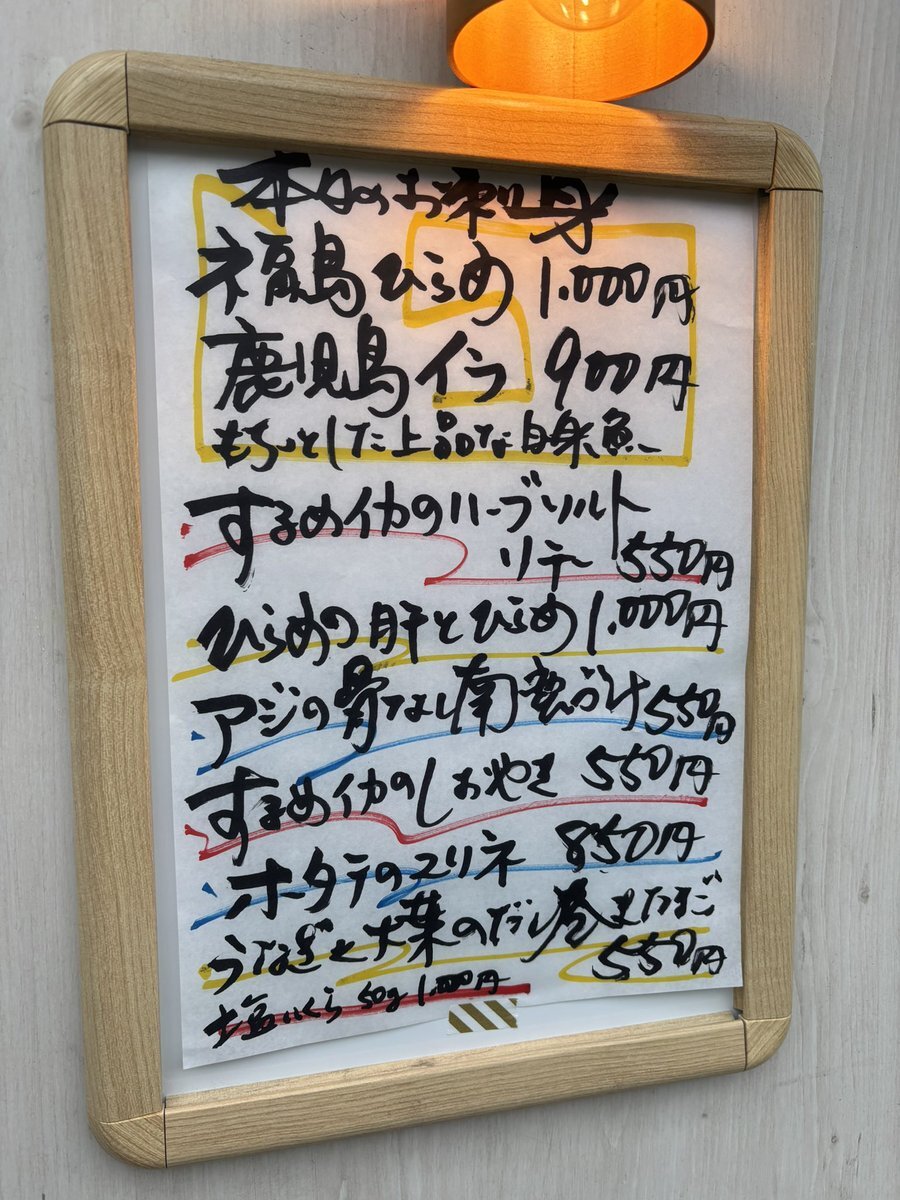 本日のお刺身
福島ひらめ 1.000円
鹿児島イラ 900円
もちっとした上品な白身魚
するめイカのハーブソルト
ソテー 550円
ひらめの肝とひらめ 1.000円
アジの骨なし南蛮づけ 550円
するめイカのしおやき 550円
ホタテのマリネ 850円
うなぎと大葉のだし巻きたまご
550円
塩いくら 50g 1.000円